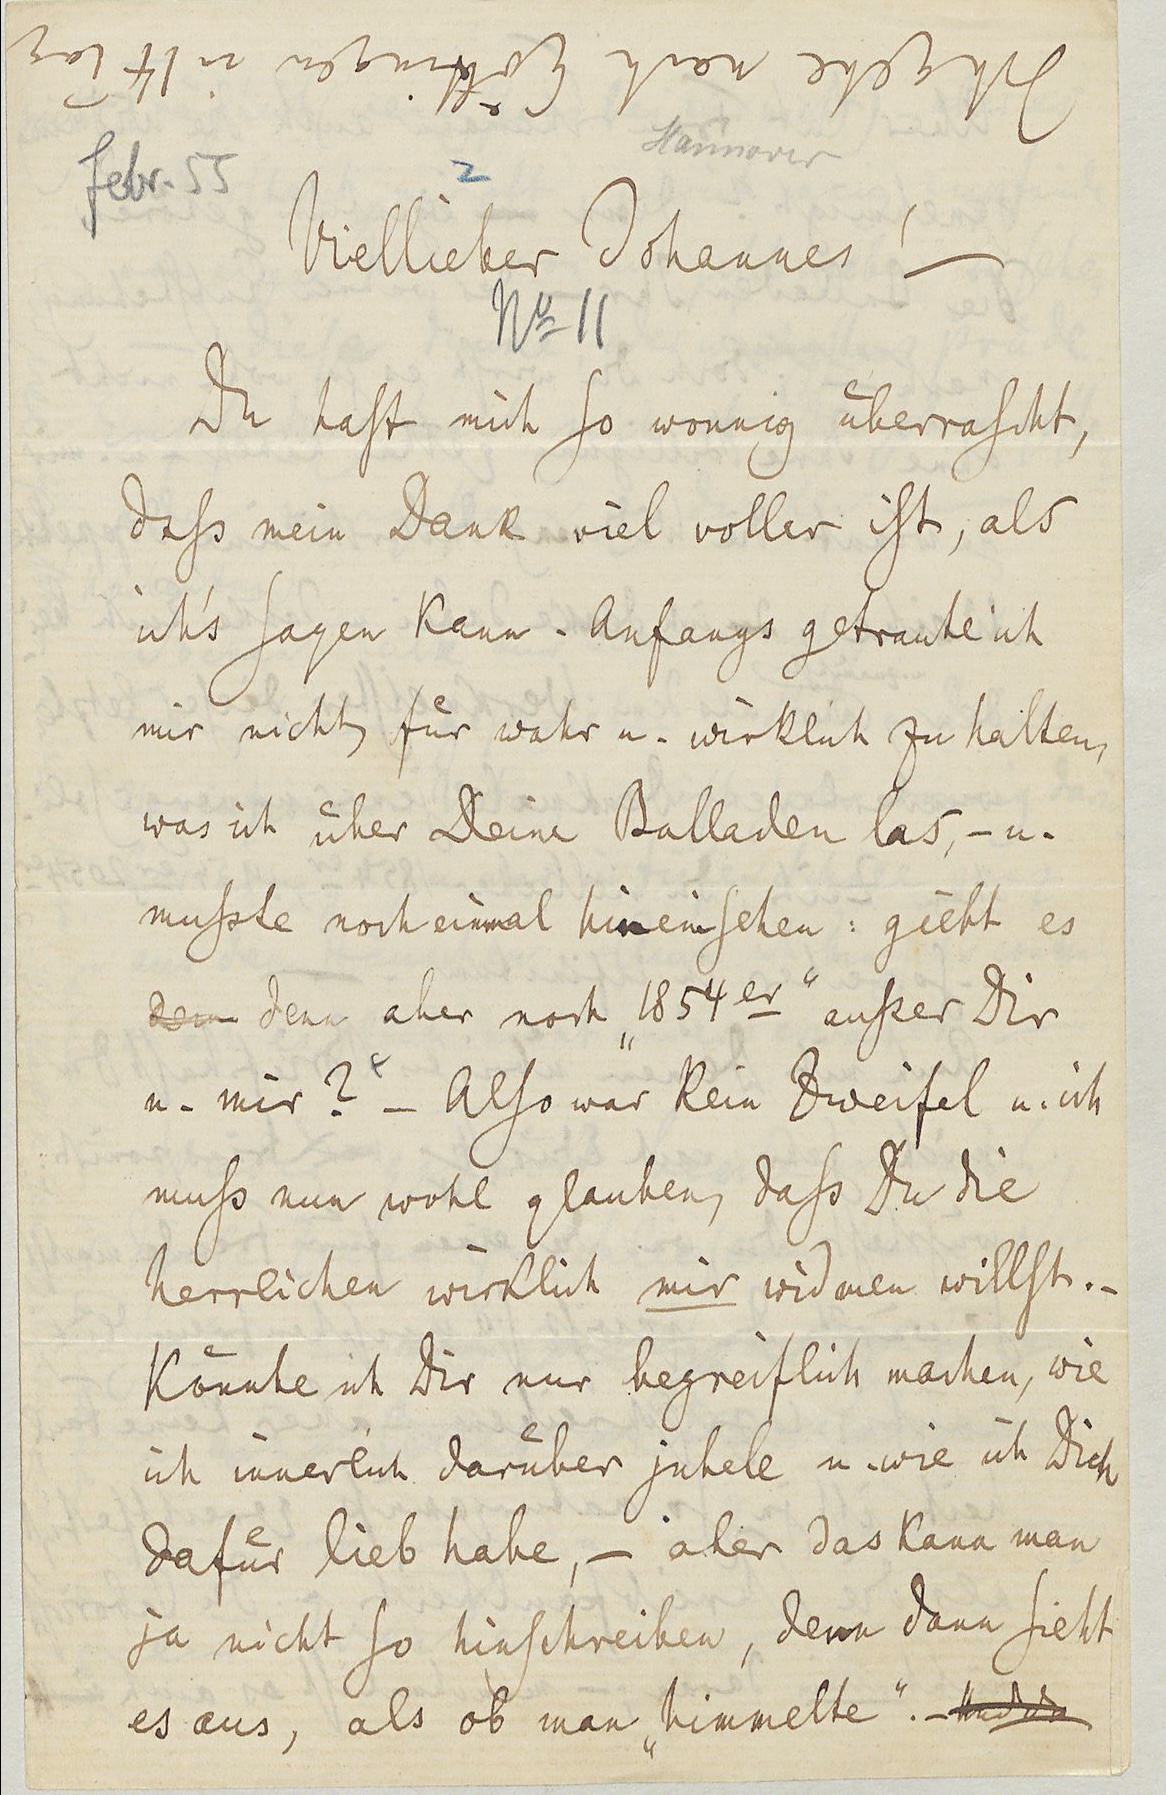 Ich gehe nach Göttingen in 14 Tag
Hannover
Febr. 55
2
Viellieber Johannes! —
No 11
Du hast mich so wonnig überrascht,
dass mein Dank viel voller ist, als
ich's sagen kann. Anfangs getraute ich
mir nicht, für wahr u. wirklich zu halten,
was ich über Deine Balladen las, – u.
musste noch einmal hineinsehen: giebt es
denn denn aber noch „1854er“ ausser Dir
u. mir?“ – Also war kein Zweifel u. ich
muss nun wohl glauben, dass Du die
herrlichen wirklich mir widmen willst. –
Könnte ich Dir nur begreiflich machen, wie
ich innerlich darüber jubele u. wie ich Dich
dafür lieb habe, – aber das kann man
ja nicht so hinschreiben, denn dann sieht
es aus, als ob man „himmelte“. –